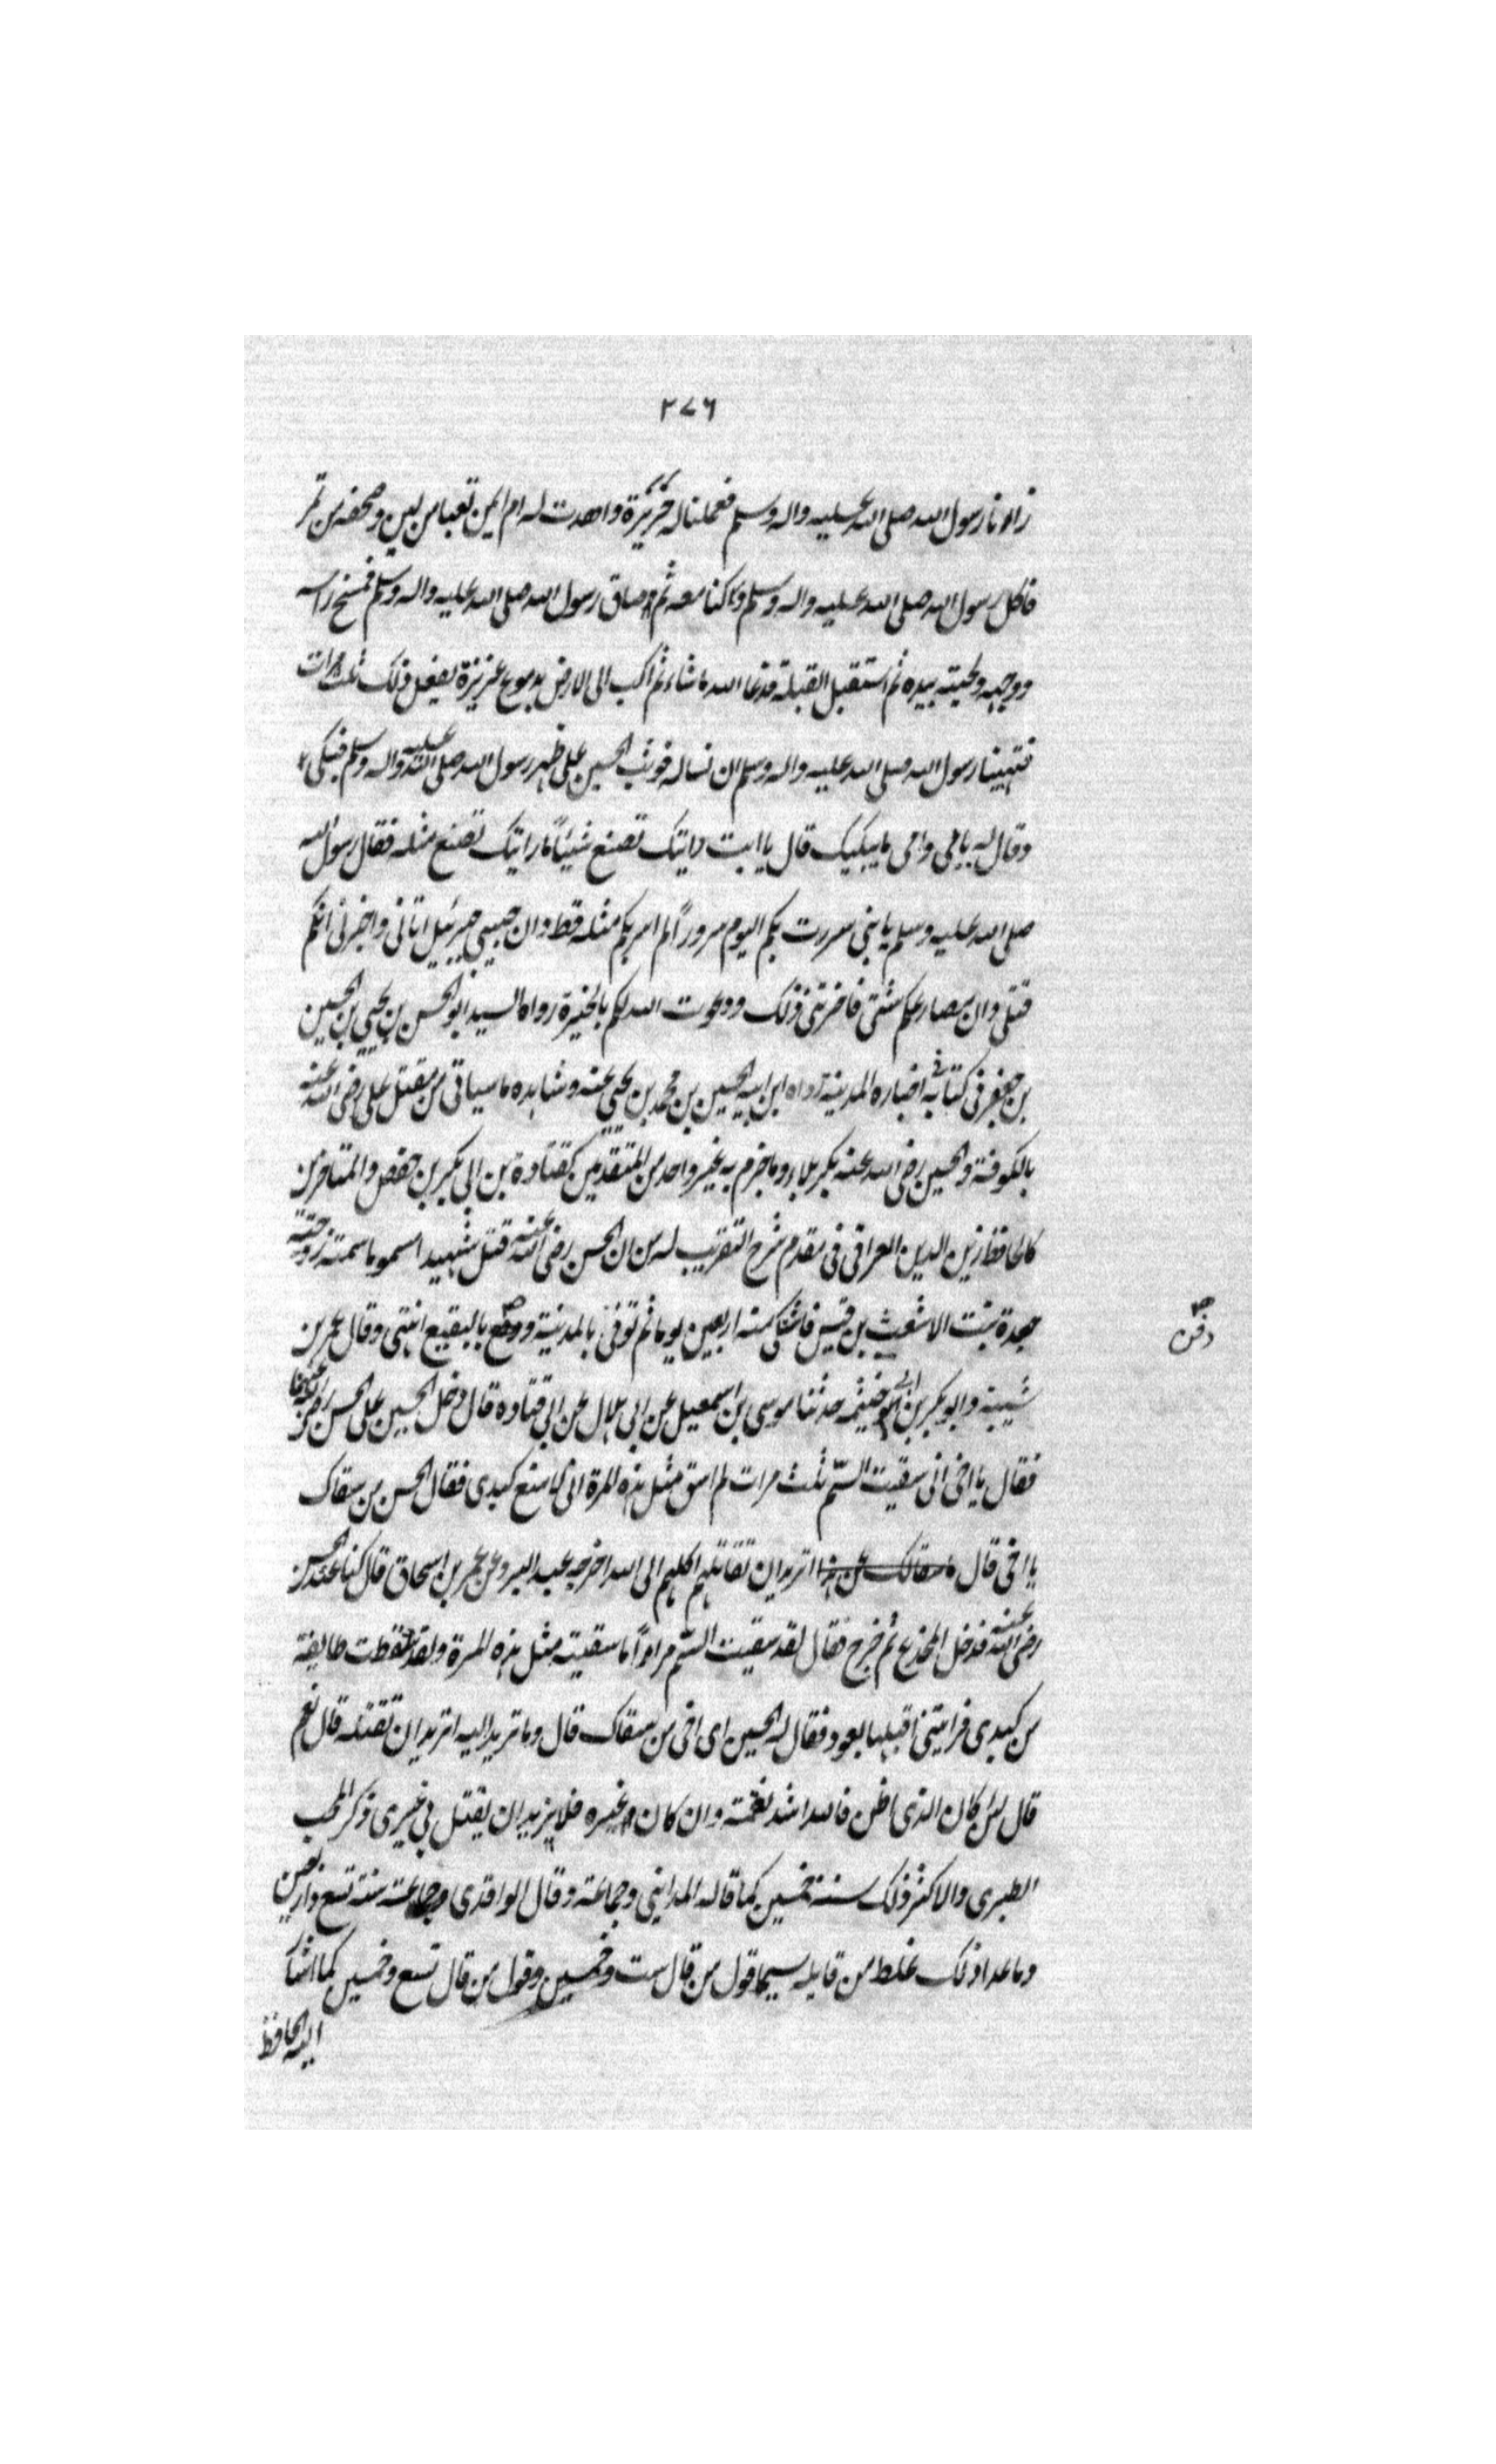 ٢٧٦
زارنا رسول الله صلى الله عليه واله وسلم فعملنا له خزيرة واهدت له ام ايمن قعبا من لبن وصحفه من تمر
فاكل رسول الله صلى الله عليه واله وسلم واكلنا معه ثم رسول الله صلى الله عليه واله وسلم فمسح راسه
ووجهه ولحيته بيده ثم استقبل القبلة فدعا الله ما شاء ثم اكب الى الارض بدموع غزيزة يفعل ذلك ثلث مرات
فتهيبنا رسول الله صلى الله عليه واله وسلم ان نساله فوثب الحسين على ظهر رسول الله صلى الله عليه واله وسلم فبكى
وقال له بابى وامى ما يبكيك قال يا ابت رايتك تصنع شيئاً ما رايتك تصنع مثله فقال رسول الله
صلى الله عليه وسلم يا بنى سررت بكم اليوم سروراً لم اسر بكم مثله قط وان حبيبى جبرئيل اتانى واخبرنى انكم
قتلى وان مصارعكم شتى فاحزننى ذلك ودعوت الله لكم بالخيرة رواه السيد ابو الحسن بن يحيى بن الحسين
بن جعفر فى كتابه فى اخباره المدينة رواه ابن ابيه الحسين بن محمد بن يحيى عنه وشاهده ما سياتى من مقتل على رضى الله عنه
بالكوفة والحسين رضى الله عنه بكربلاء وما جزم به غير واحد من المتقدمين كقتادة بن ابى بكر بن حفص والمتاخرين
كالحافظ زين الدين العراقى فى مقدم شرح التقريب له من ان الحسن رضى الله عنه قتل شهيدا اسموما سمته زوجته
جعدة بنت الاشعث بن قيس فاشتكى منه اربعين يوما ثم توفى بالمدينة ووضع بالبقيع انتهى وقال عمر بن
دفن
شيبة وابو بكر بن ابى خيثمه حدثنا موسى بن اسمعيل عن ابى هلال عن ابى قتاده قال دخل الحسين على الحسن رضى الله عنهما
فقال يا اخى انى سقيت السّم ثلث مرات لم اسق مثل هذه المرة انى لاضع كبدى فقال الحسن من سقاك
يا اخى قال ما سقالك عن هذا اتريد ان تقاتلهم اكلهم الى الله اخرجه عبد البر وعن عمر بن اسحاق قال كنا عند الحسن
رضى الله عنه فدخل المخدع ثم خرج فقال لقد سقيت السّم مراراً ما سقيته مثل هذه المرة ولقد سقطت طايفة
من كبدى فرايتنى اقبلها بعود فقال له الحسين اى اخى من سقاك قال وما تريد اليه اتريد ان تقتله قال نعم
قال لئن كان الذى اظن فالله اشد نقمة وان كان غيره فلا يريد ان يقتل بى غيرى ذكر المحب
الطبرى والاكثر ذلك سنة خمسين كما قاله المداينى وجماعة وقال الواقدى وجماعة سنة تسع واربعين
وما عدا ذلك غلط من قايله سيما قول من قال ست وخمسين وقول من قال تسع وخمسين كما اشار
اليه الحافظ